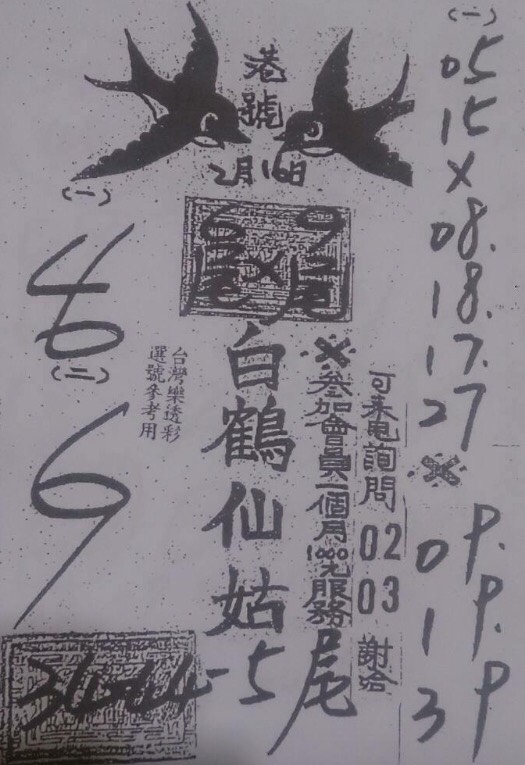 港號
2月16日
(一)
05
15
×
08.
18.
17.
27
※
09.
19.
39
(一)
(二)
台灣樂透彩
選號參考用
白鶴仙姑
※
參加會員一個月1000元服務
可來電詢問 02 03 謝哈
-5尾